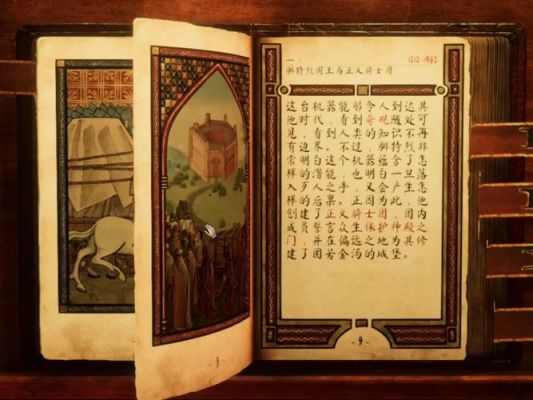 一 :
腓特烈国王与正义骑士团
这台机器能够令人到达其
他时代，看到奇观随处可
见，看到人类的知识不再
有边界。不过，腓特烈非
常明白这个机器蕴含了怎
样的潜能，也明白一旦落
入歹人之手，又会产生怎
样的后果。正因为此，他
创建了正义骑士团，团内
成员誓言众生保护神殿之
门，并在偏远之地为其修
建了固若金汤的城堡。
8
- 9 -